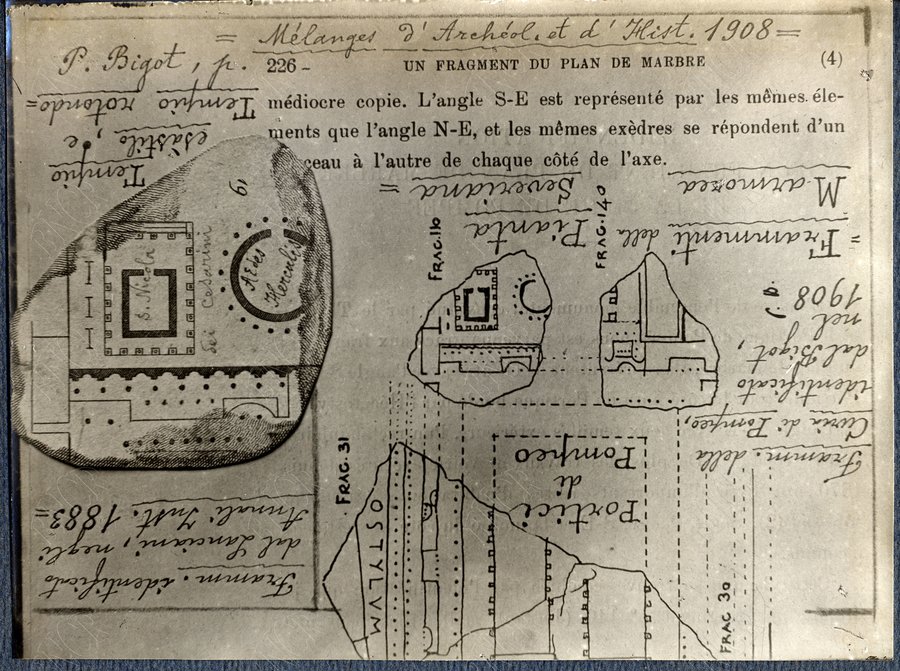 = Mélanges d'Archéol. et d'Hist. 1908 =
P. Bigot, p. 226 -
UN FRAGMENT DU PLAN DE MARBRE
(4)
médiocre copie. L'angle S-E est représenté par les mêmes élé-
ments que l'angle N-E, et les mêmes exèdres se répondent d'un
ceau à l'autre de chaque côté de l'axe.
Tempio
esastilo, e
Tempio rotondo =
19
S. Nicola
Cesarini
Aedes
Herculis
= Frammenti della Pianta
Marmorea Severiana =
FRAG. 110
FRAG. 140
Framm. della
Curia di Pompeo,
identificato
dal Bigot,
nel
1908
Portici
di
Pompeo
FRAG. 31
OSTYLVM
FRAG 30
Framm. identificato
dal Lanciani, negli
Annali Inst. 1883 =